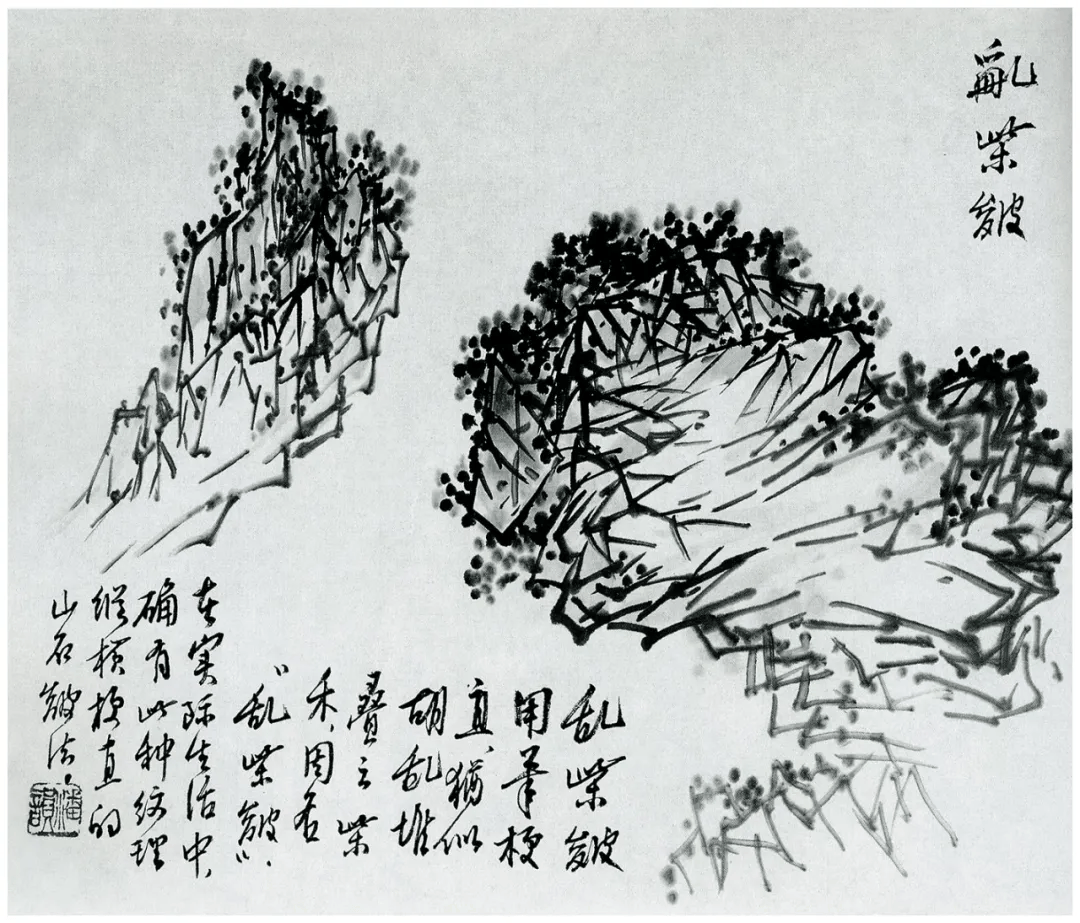 亂柴皴
乱柴皴
用筆梗
直、猶似
胡乱堆
疊之柴
禾、因名
“乱柴皴”.
在实际生活中,
确有此种纹理
縱横梗直的
山石皴法.
潘韻